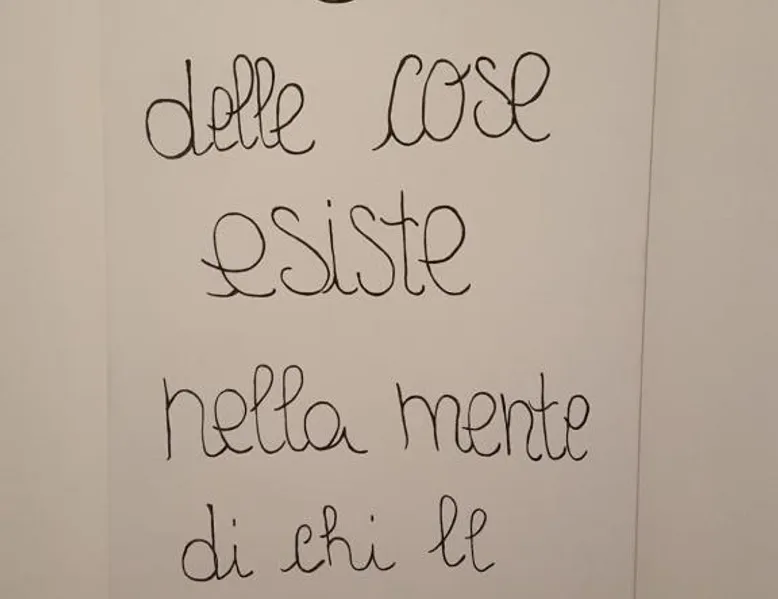 delle cose
esiste
nella mente
di chi le